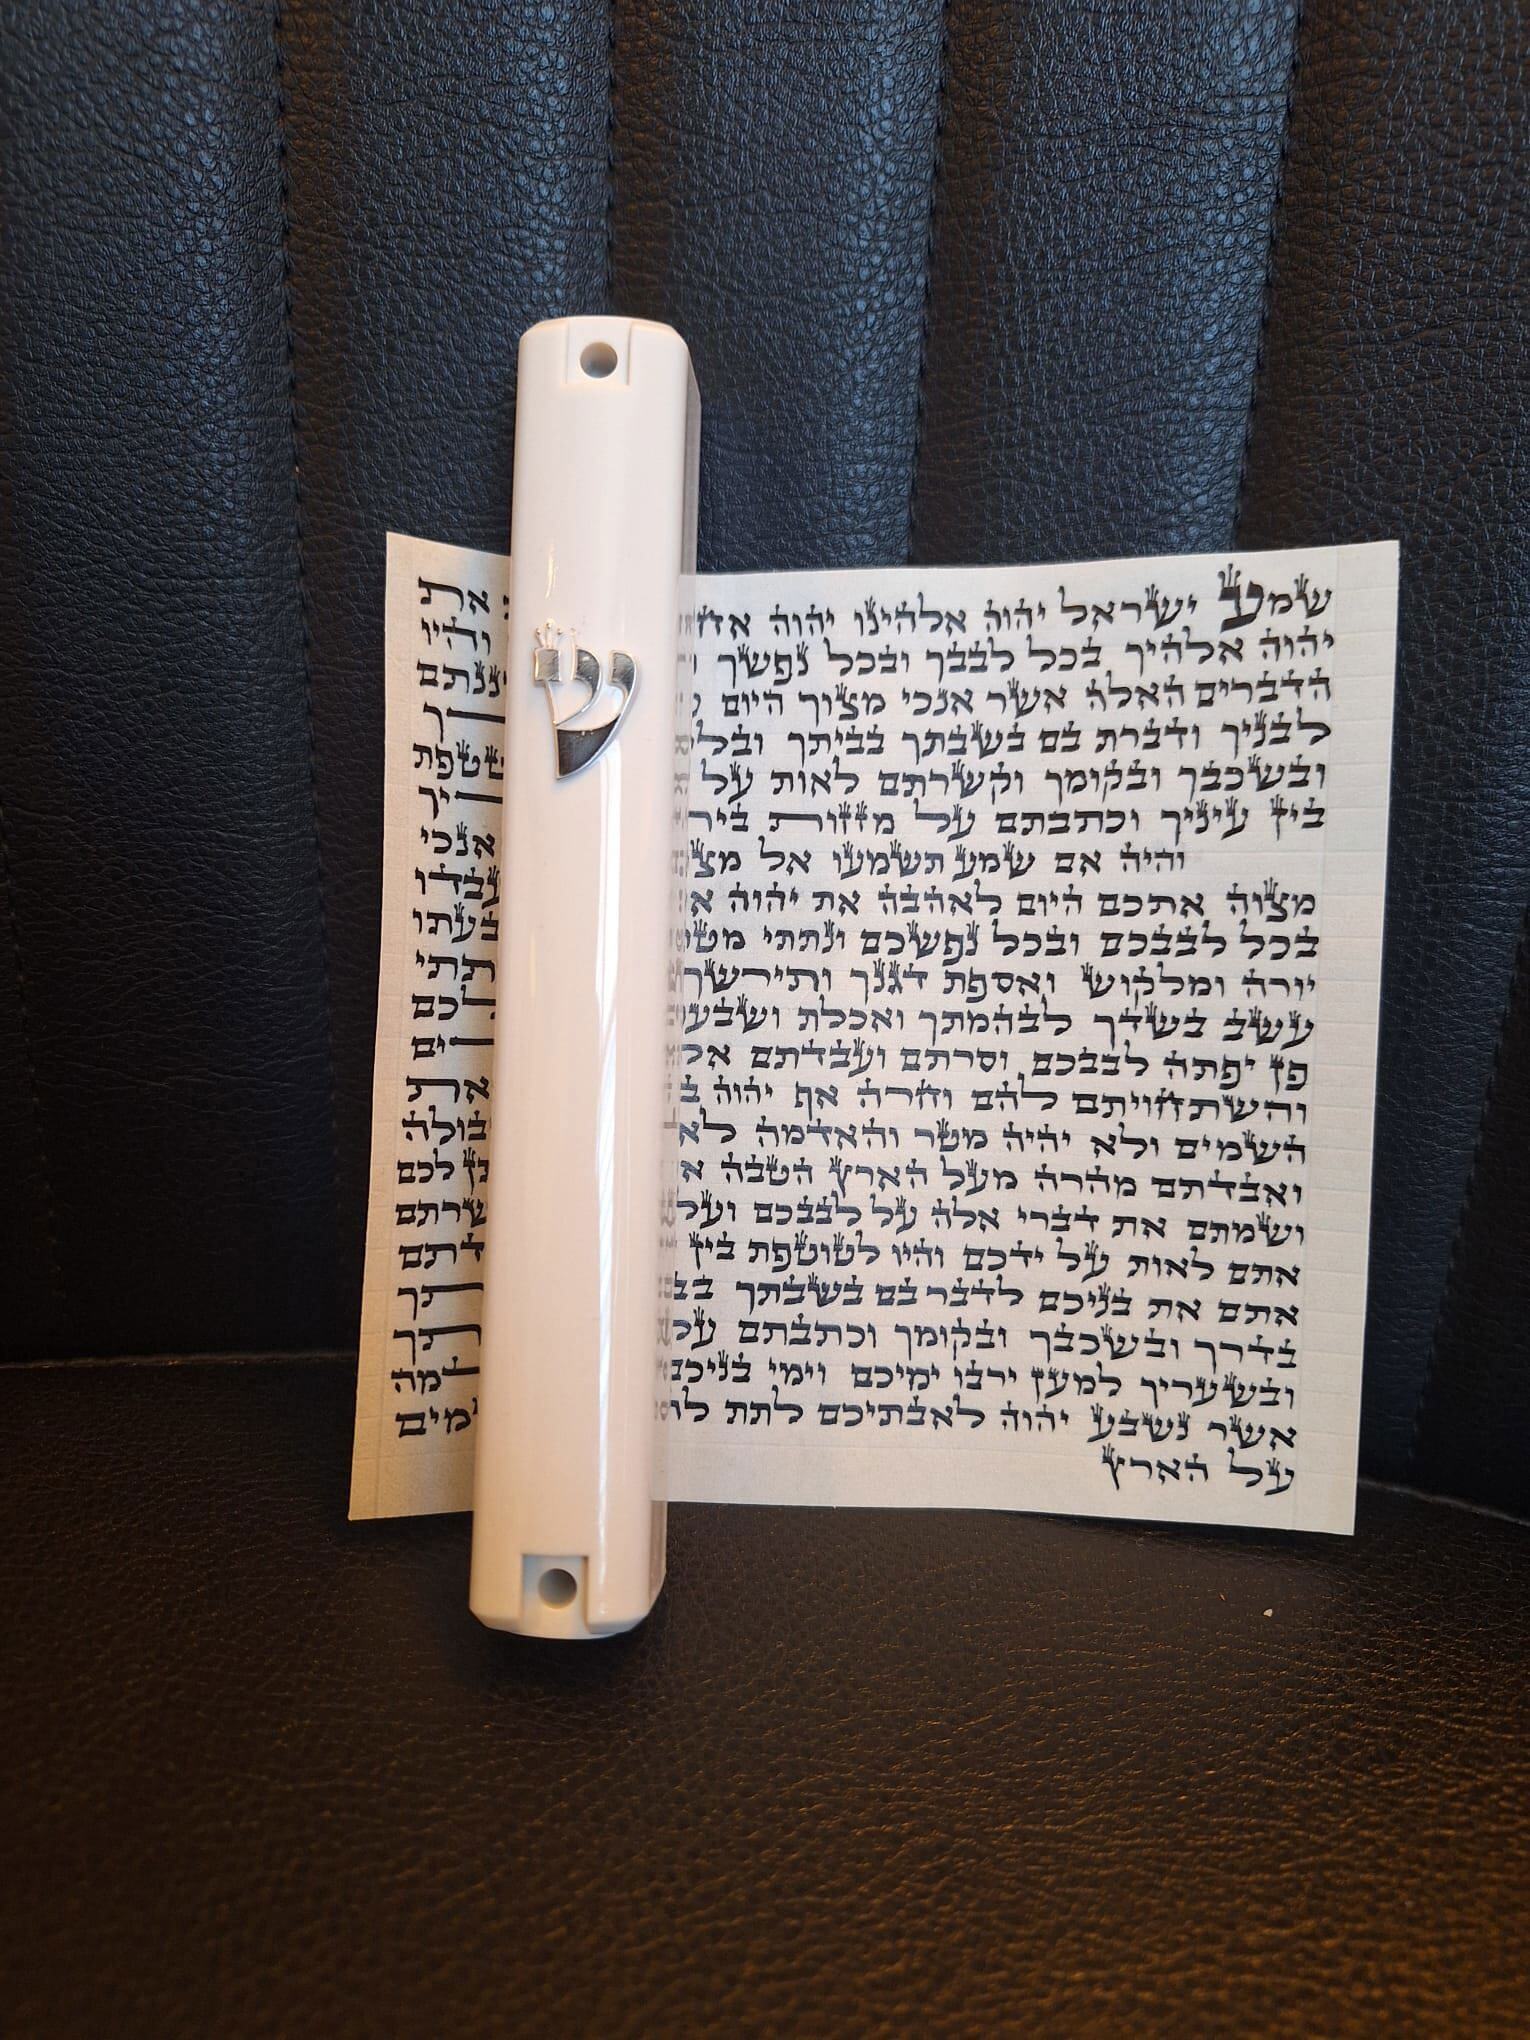 שמע ישראל יהוה אלהינו יהוה את
יהוה אלהיך בכל לבבך ובכל נפשך והיו
הדברים האלה אשר אנכי מצוך היום
לבניך ודברת בם בשבתך בביתך
ובשכבך ובקומך וקשרתם לאות על שטפת
בין עיניך וכתבתם על מזזות
והיה אם שמע תשמעו אל אנכי
מצוה אתכם היום לאהבה את יהוה
בכל לבבכם ובכל נפשכם ונתתי
יורה ומלקוש ואספת דגנך ותירשך
עשב בשדך לבהמתך ואכלת
פן יפתה לבבכם וסרתם ועבדתם
והשתחויתם להם וחרה אף יהוה את
השמים ולא יהיה מטר והאדמה לא
ואבדתם מהרה מעל הארץ הטבה לכם
ושמתם את דברי אלה על לבבכם
אתם לאות על ידכם והיו לטוטפת בין
אתם את בניכם לדבר בם בשבתך
בדרך ובשכבך ובקומך וכתבתם
ובשעריך למען ירבו ימיכם וימי
אשר נשבע יהוה לאבתיכם לתת
על הארץ
ש